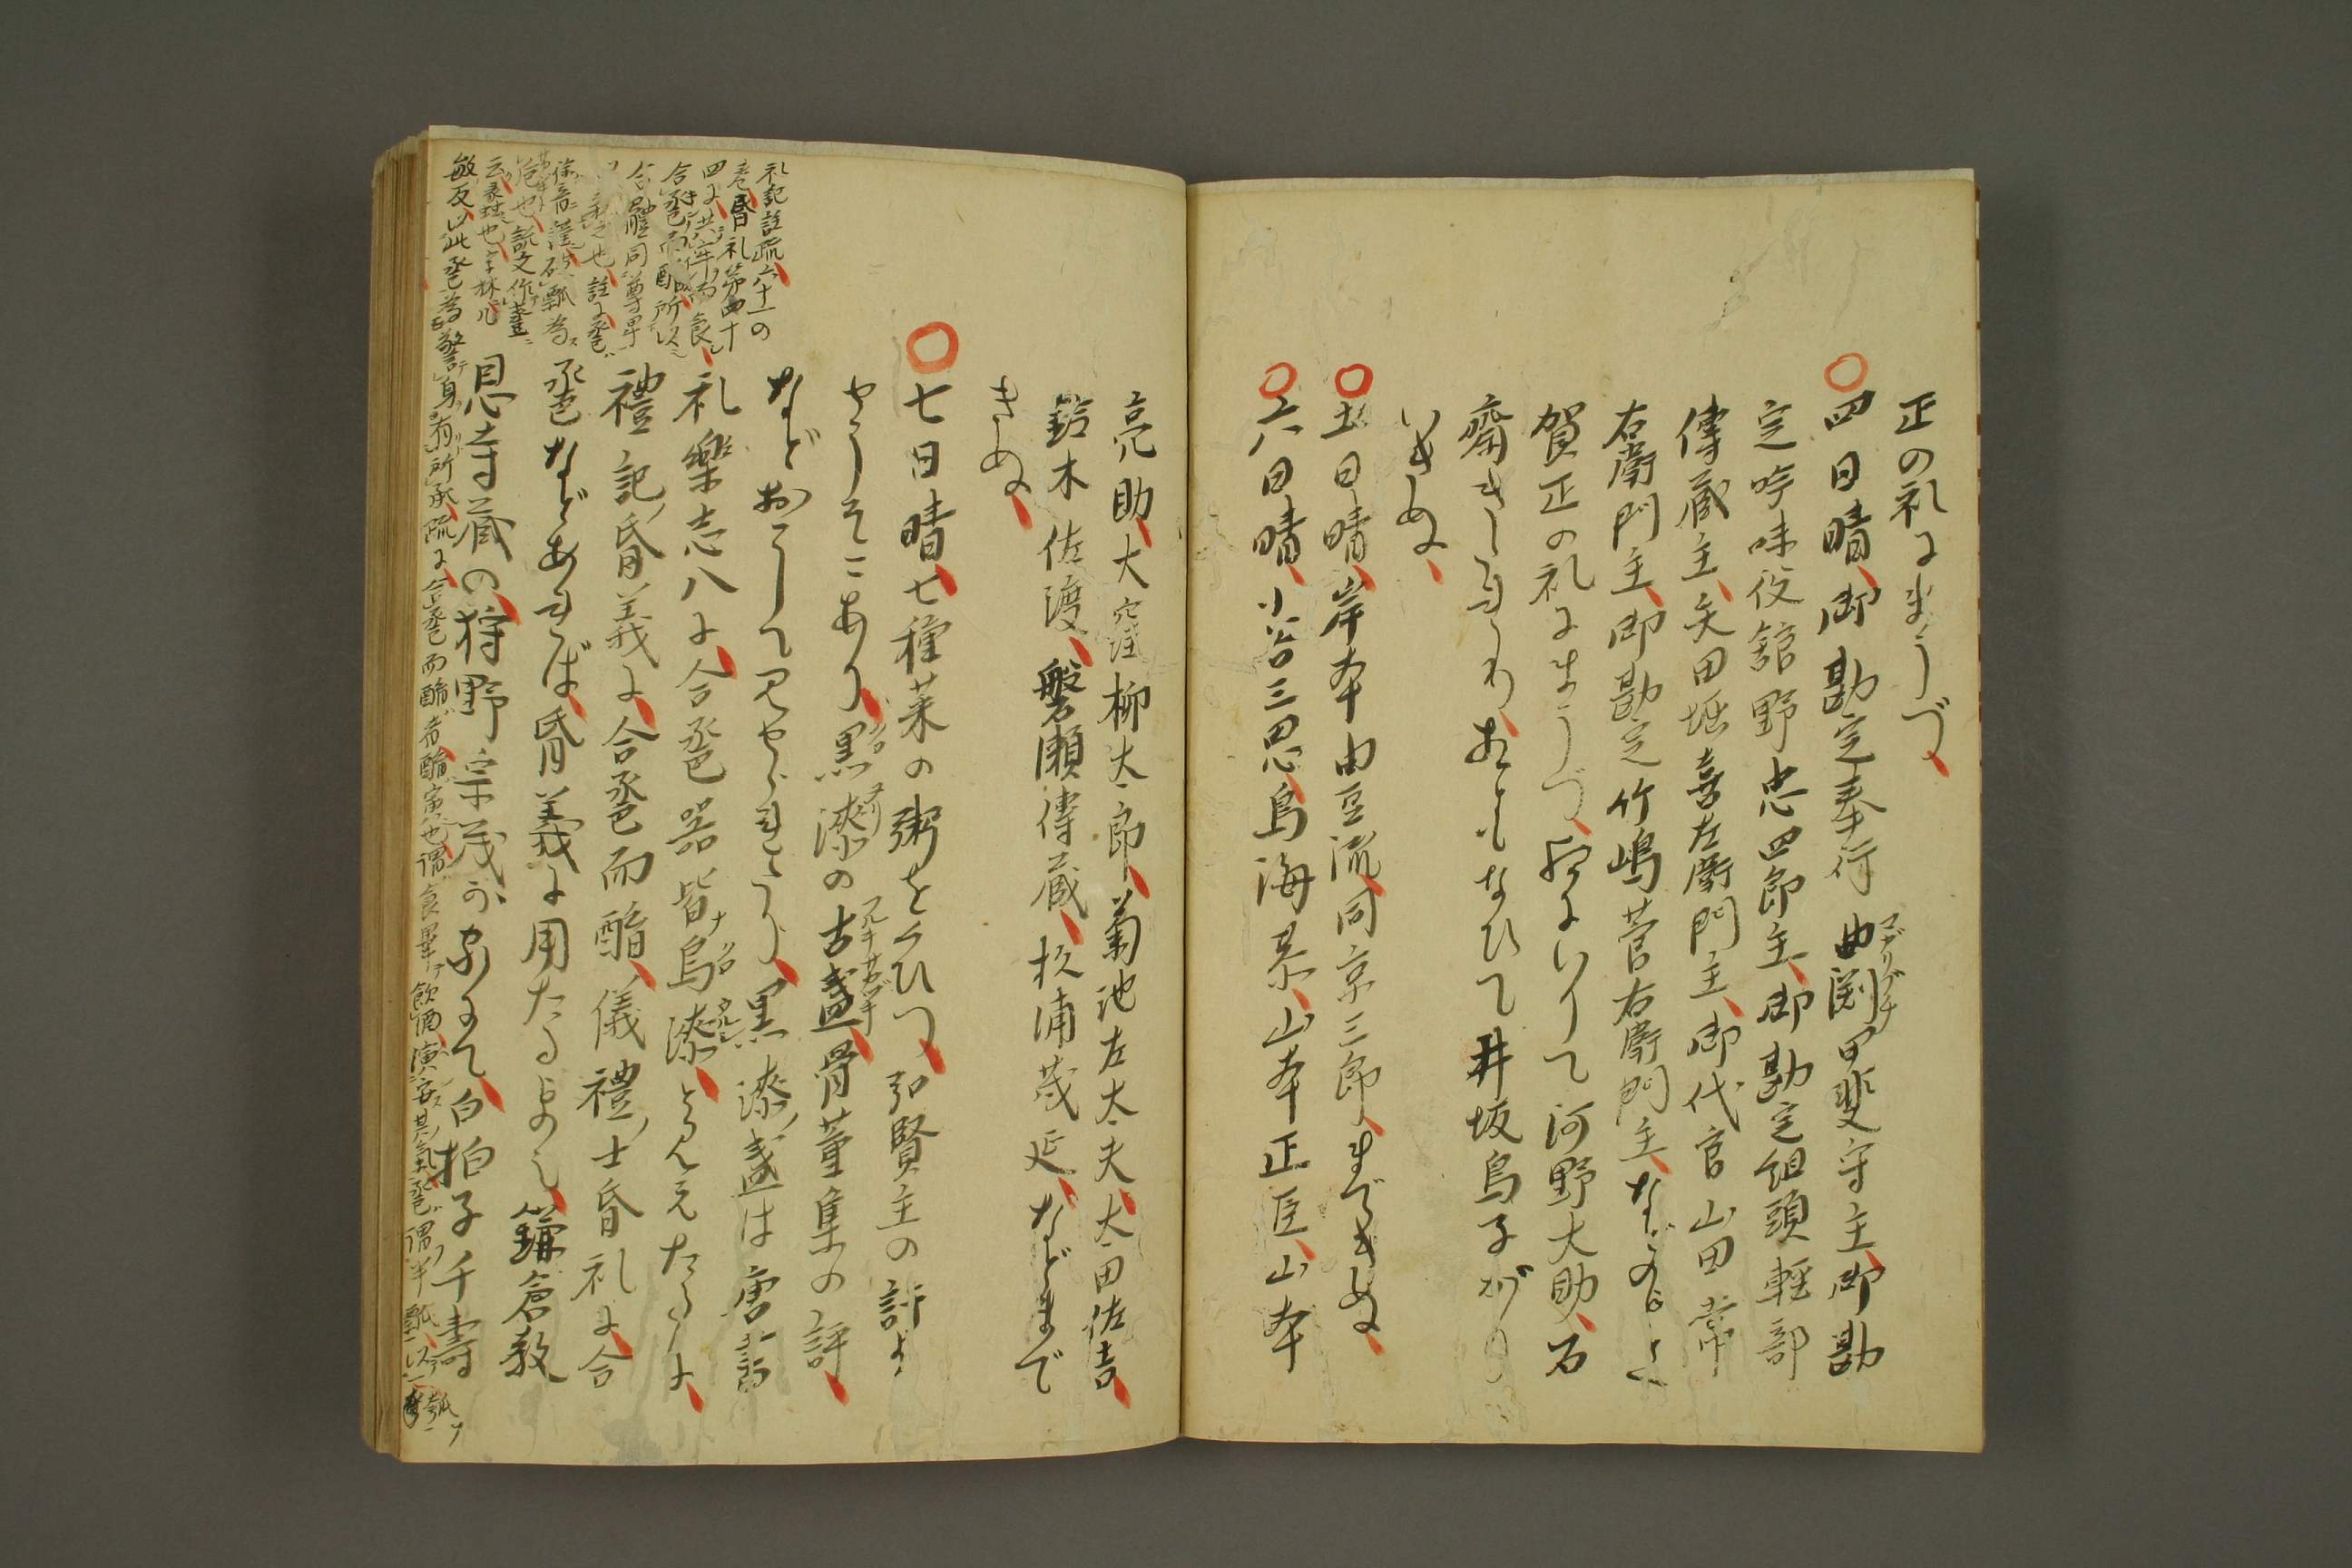 正の礼にまうづ、
○四日晴、御勘定奉行曲渕甲斐守主、御勘
マガリブチ
定吟味役舘野忠四郎主、御勘定組頭軽部
傳蔵主、矢田堀喜左衛門主、御代官山田常
右衛門主、御勘定竹嶋菅右衛門主、などの
賀正の礼にまうづ、いりて河野大助、石
齋きしまうおともなひて井坂鳥子がり
いきぬ、
○五日晴、岸本由豆流、同京三郎、まできぬ、
○六日晴、小谷三思、島海恭、山本正臣、山本
亮助、大窪柳太郎、菊池左大夫、太田佐吉、
鈴木佐渡、磐瀬傳蔵、杉浦茂延、などまで
きぬ、
○七日晴、七種菜の粥をくひつ、弘賢主の許よ
やうそこあり、黒漆の古盞、骨董集の評、
クロヌリ
フルキサカヅキ
などおこしてみせられたり、黒漆盞は唐書
礼楽志八に、合巹器皆烏漆、とみえたるに、
禮記昏義に、合巹而酳、儀禮士昏礼に、合
巹などあれば、昏義に用たるよのし、鎌倉教
恩寺蔵の、狩野宗茂が家にて、白拍子千壽
礼記註疏六十一の
巻昏礼第四十
四に、共牢而食、
合巹而酳、所以
合體同尊卑
以親之也、註に、巹
徐音謹、破瓢為
巵也、説文作
云蠡也、字林几
敏反、此巹為警身有所承、疏に、合巹而酳者、酳演也、謂食畢飲酒演安其氣、巹謂半瓢、以一瓠